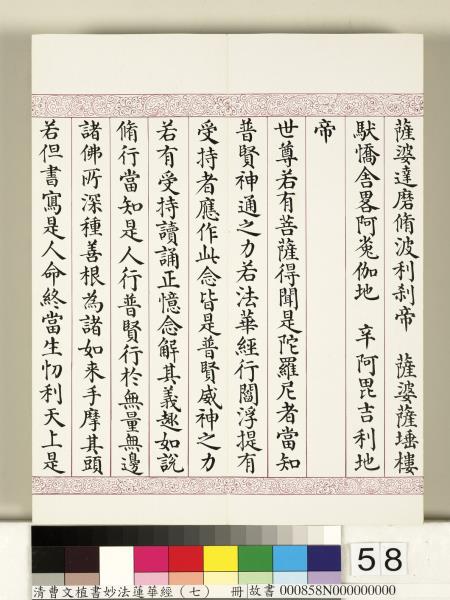 薩婆達磨脩波利刹帝　薩婆薩埵樓
馱憍舍畧阿㝹伽地　辛阿毘吉利地
帝
世尊若有菩薩得聞是陀羅尼者當知
普賢神通之力若法華經行閻浮提有
受持者應作此念皆是普賢威神之力
若有受持讀誦正憶念解其義趣如說
脩行當知是人行普賢行於無量無邊
諸佛所深種善根為諸如来手摩其頭
若但書寫是人命終當生忉利天上是
58
清曹文植書妙法蓮華經（七）　冊 故書 000858N000000000